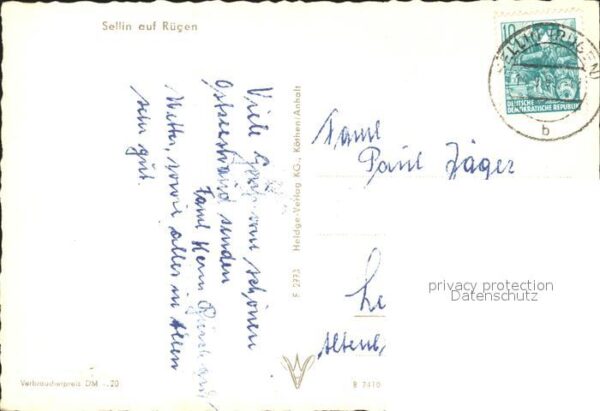 Sellin auf Rügen
10
DEUTSCHE
DEMOKRATISCHE REPUBLIK
SELLIN (RÜGEN)
b
Viele Grüße vom schönen
Ostseestrand senden
Faml Herm
Wetter, sowie alles in allen
sehr gut.
F 2773 Heldge-Verlag KG., Köthen/Anhalt
Faml
Paul Jäger
privacy protection
Datenschutz
Le
Altenb
Verbraucherpreis DM -.20
B 7410